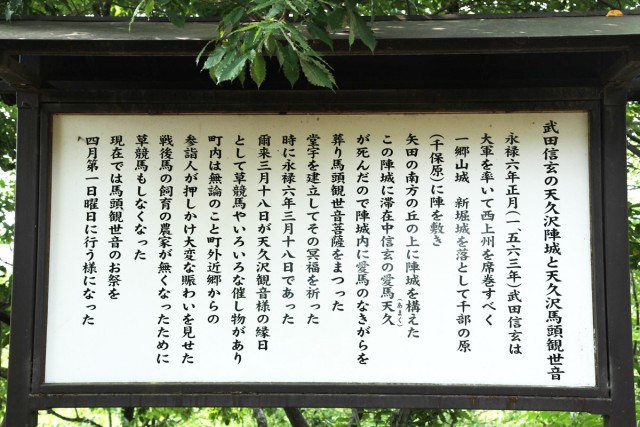 武田信玄の天久沢陣城と天久沢馬頭観世音
永禄六年正月(一、五六三年)武田信玄は
大軍を率いて西上州を席巻すべく
一郷山城 新堀城を落として千部の原
(千保原)に陣を敷き
矢田の南方の丘の上に陣城を構えた
この陣城に滞在中信玄の愛馬天久
(あまく)
が死んだので陣城内に愛馬のなきがらを
葬り馬頭観世音菩薩をまつった
堂宇を建立してその冥福を祈った
時に永禄六年三月十八日であった
爾来三月十八日が天久沢観音様の縁日
として草競馬やいろいろな催し物があり
町内は無論のこと町外近郷からの
参詣人が押しかけ大変な賑わいを見せた
戦後馬の飼育の農家が無くなったために
草競馬もしなくなった
現在では馬頭観世音のお祭を
四月第一日曜日に行う様になった